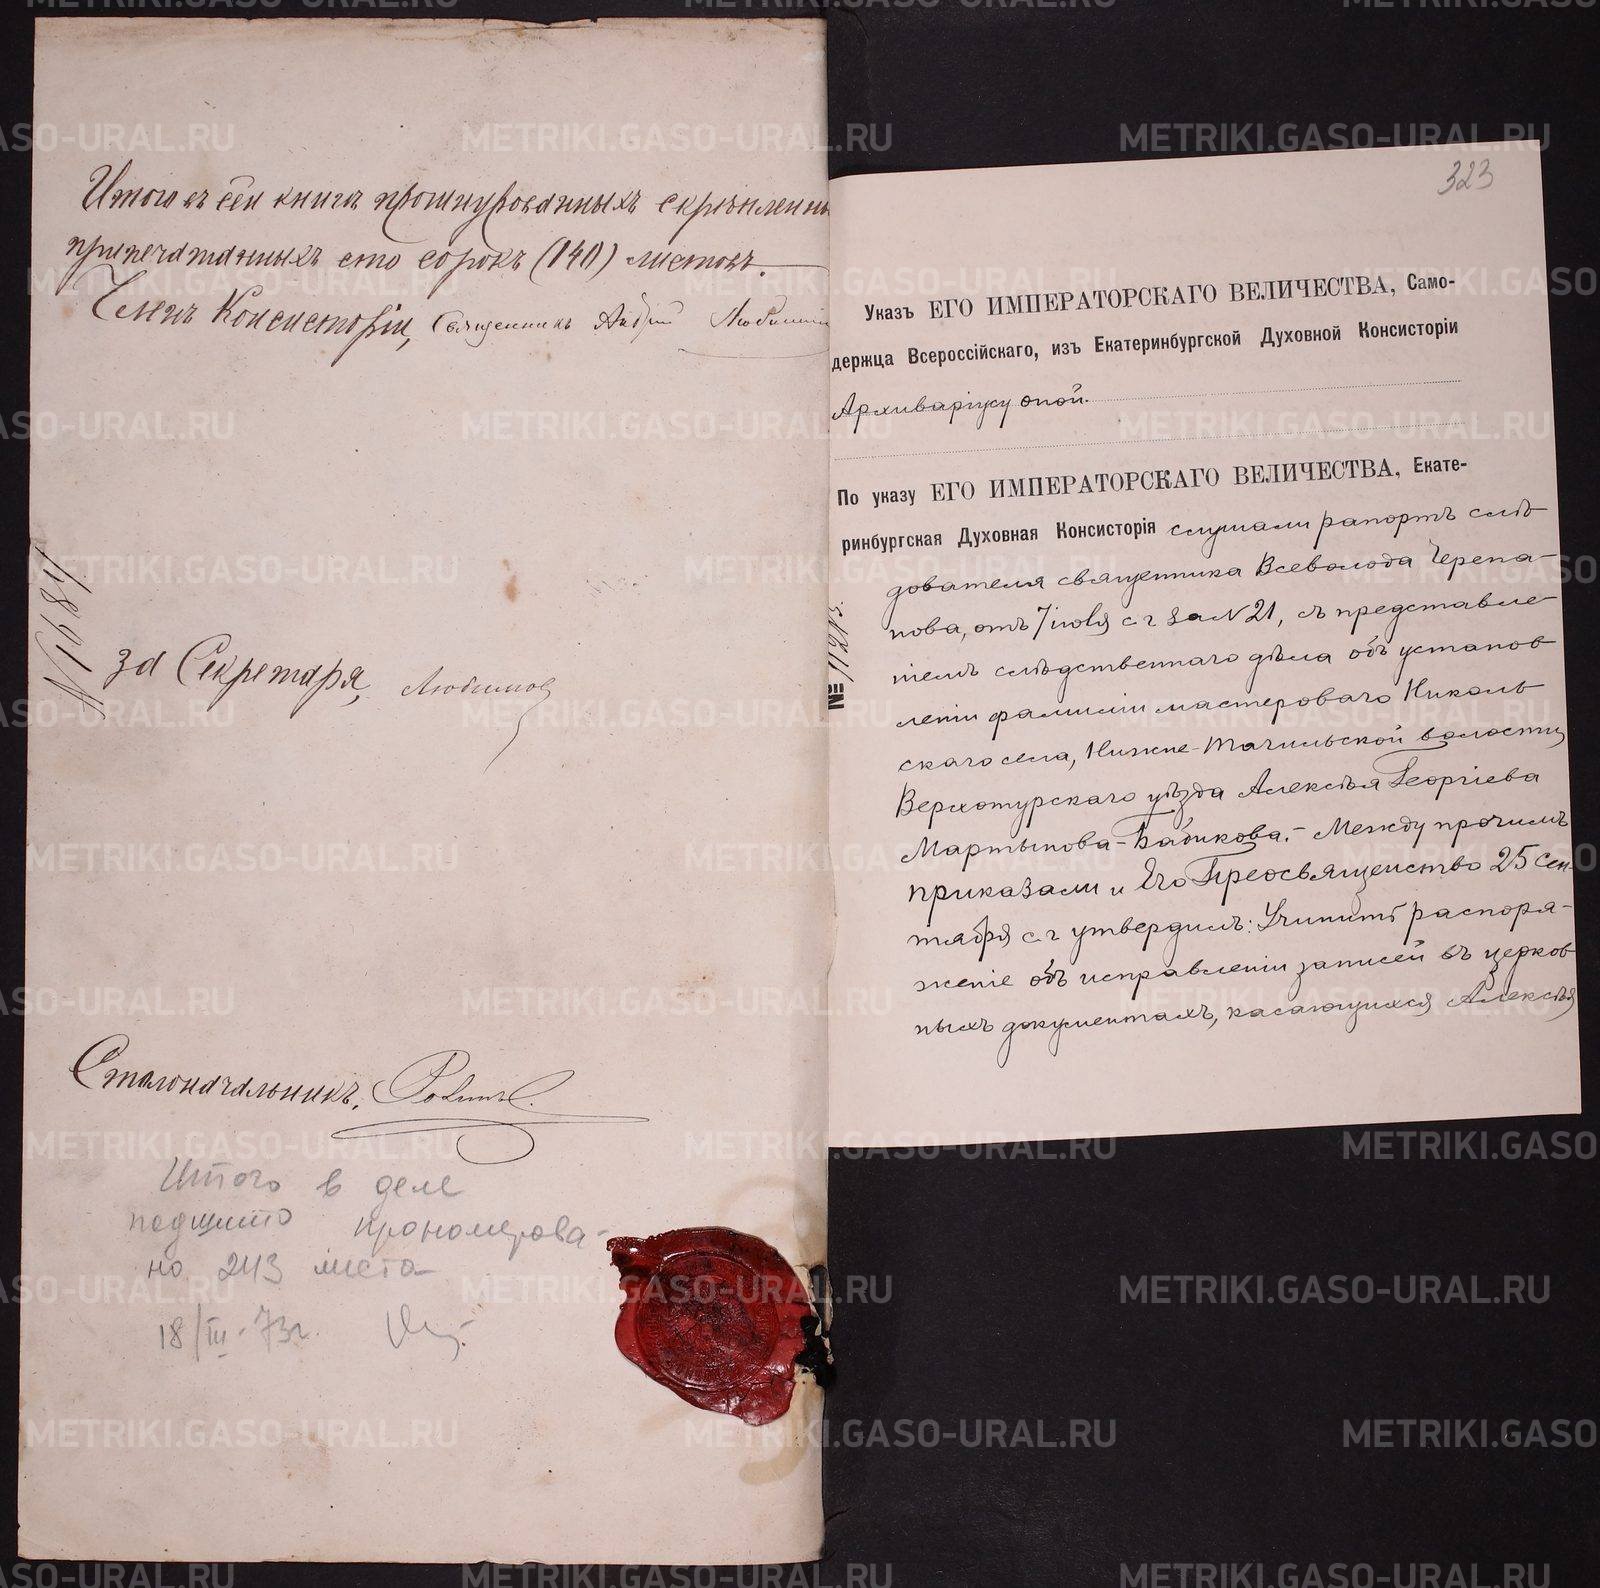 Итого въ сей книгѣ прошнурованныхъ скрѣпленны
припечатанныхъ сто сорокъ (140) листовъ.
Членъ Консисторіи, Священникъ Андрей Любимовъ
№ 1684
За Секретаря, Любимовъ
Столоначальникъ,
Итого в деле
подшито пронумерова-
но 243 листа
18/III-73г.
323
Указъ ЕГО ИМПЕРАТОРСКАГО ВЕЛИЧЕСТВА, Само-
держца Всероссійскаго, изъ Екатеринбургской Духовной Консисторіи
Архиваріусу оной.
По указу ЕГО ИМПЕРАТОРСКАГО ВЕЛИЧЕСТВА, Екате-
ринбургская Духовная Консисторія слушали рапортъ слѣ-
дователя священника Всеволода Черепа-
нова, отъ 7 іюля с г за № 21, съ представле-
ніемъ слѣдственнаго дѣла объ установ
леніи фамиліи мастероваго Николь
скаго села, Нижне-Тагильской волости,
Верхотурскаго уѣзда Алексѣя Георгіева
Мартынова-Бабикова.- Между прочимъ
приказали и Его Преосвященство 25 сен-
тября с. г утвердилъ: Учинить распоря-
женіе объ исправленіи записей въ церков
ныхъ документахъ, касающихся Алексѣя
№ 11213
METRIKI.GASO-URAL.RU